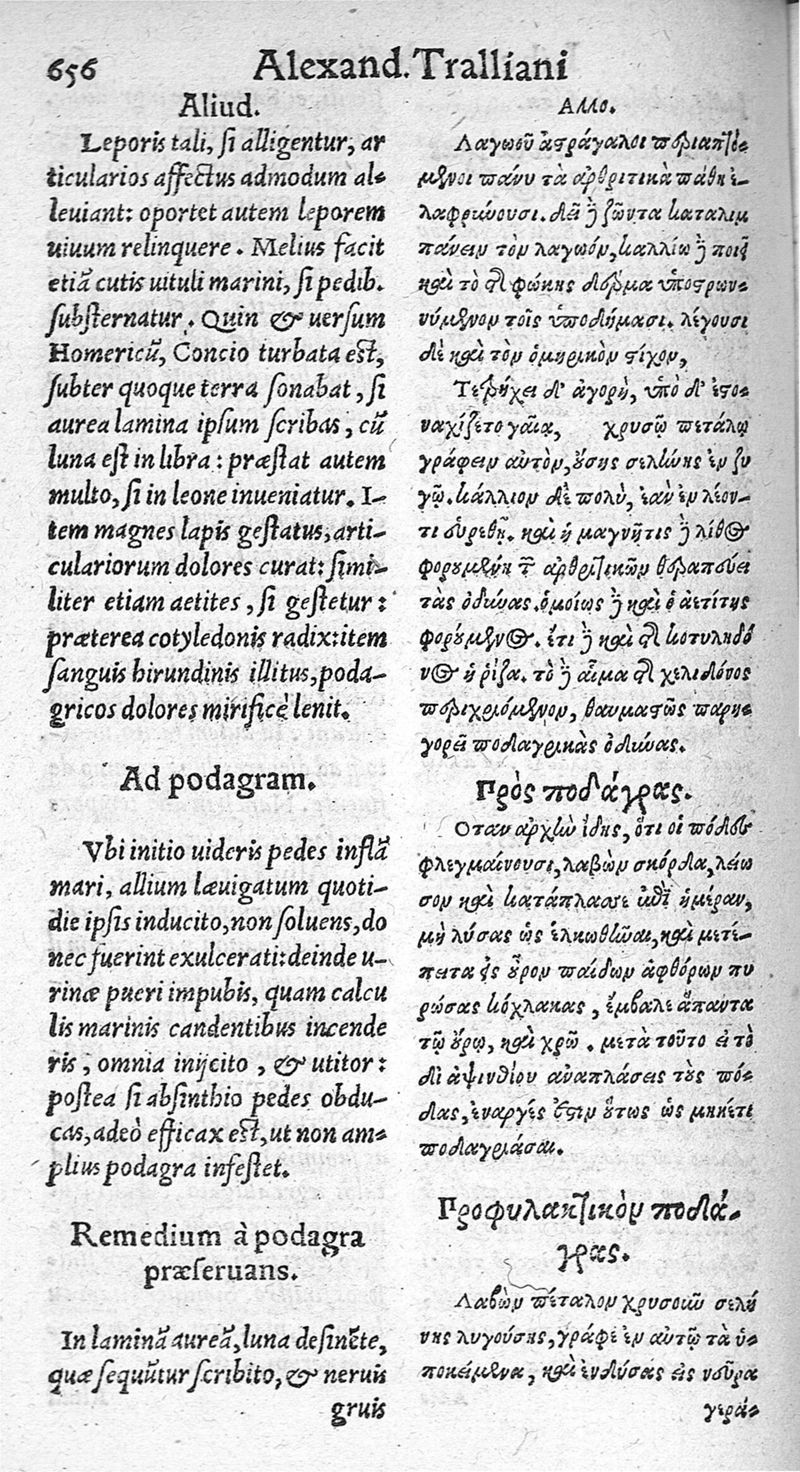 656
Alexand. Tralliani
Aliud.
Leporis tali, si alligentur, ar
ticularios affectus admodum al-
leuiant: oportet autem leporem
uiuum relinquere. Melius facit
etiã cutis uituli marini, si pedib.
substernatur. Quin & uersum
Homericũ, Concio turbata est,
subter quoque terra sonabat, si
aurea lamina ipsum scribas, cũ
luna est in libra: præstat autem
multo, si in leone inueniatur. I-
tem magnes lapis gestatus, arti-
culariorum dolores curat: simi-
liter etiam aetites, si gestetur:
præterea cotyledonis radix: item
sanguis hirundinis illitus, poda-
gricos dolores mirificè lenit.
Ad podagram.
Vbi initio uideris pedes inflã
mari, allium læuigatum quoti-
die ipsis inducito, non soluens, do
nec fuerint exulcerati: deinde u-
rinæ pueri impubis, quam calcu
lis marinis candentibus incende
ris, omnia inijcito, & utitor:
postea si absinthio pedes obdu-
cas, adeò efficax est, ut non am-
plius podagra infestet.
Remedium à podagra
præseruans.
In laminã aureã, luna desinẽte,
quæ sequũtur scribito, & neruis
gruis
Αλλο.
Λαγωοῦ ἀστράγαλοι περιαπτό-
μενοι πάνυ τὰ ἀρθριτικὰ πάθη ἐ-
λαφρύνουσι. δεῖ ἢ ζῶντα καταλιμ
πάνειν τὸν λαγωόν, καλλίω ἢ ποιεῖ
καὶ τὸ τῆς φώκης δέρμα ὑποστρων-
νύμενον τοῖς ὑποδήμασι. λέγουσι
δὲ καὶ τὸν ὁμηρικὸν στίχον,
Τετρήχει δ' ἀγορὴ, ὑπὸ δ' ἐστο-
ναχίζετο γαῖα, χρυσῷ πετάλῳ
γράφειν αὐτὸν, οὔσης σελήνης ἐν ζυ
γῷ. κάλλιον δὲ πολὺ, ἐὰν ἐν λέον-
τι εὑρεθῇ. καὶ ἡ μαγνῆτις ἢ λίθος
φορουμένη τῶν ἀρθριτικῶν θεραπεύει
τὰς ὀδύνας. ὁμοίως ἢ καὶ ὁ ἀετίτης
φορούμενος. ἔτι ἢ καὶ τῆς κοτυληδό
νος ἡ ῥίζα. τὸ ἢ αἷμα τῆς χελιδόνος
περιχριόμενον, θαυμαστῶς παρη-
γορεῖ ποδαγρικὰς ὀδύνας.
Πρὸς ποδάγρας.
Οταν ἀρχὴν ἴδης, ὅτι οἱ πόδες
φλεγμαίνουσι, λαβὼν σκόρδα, λείω
σον καὶ κατάπλασσε καθ' ἡμέραν,
μὴ λύσας ὡς ἑλκωθῆναι, καὶ μετέ-
πειτα εἰς οὖρον παίδων ἀφθόρων πυ
ρώσας κόχλακας, ἔμβαλε ἅπαντα
τῷ οὔρῳ, καὶ χρῶ. μετὰ τοῦτο εἰ τὸ
δι ἀψινθίου ἀναπλάσεις τοὺς πό-
δας, ἐναργές ἐστιν οὕτως ὡς μηκέτι
ποδαγριάσαι.
Προφυλακτικὸν ποδά-
γρας.
Λαβὼν πέταλον χρυσοῦν σελή
νης λυγούσης, γράφε ἐν αὐτῷ τὰ ὑ-
ποκείμενα, καὶ ἐνδύσας εἰς νεῦρα
γερά-